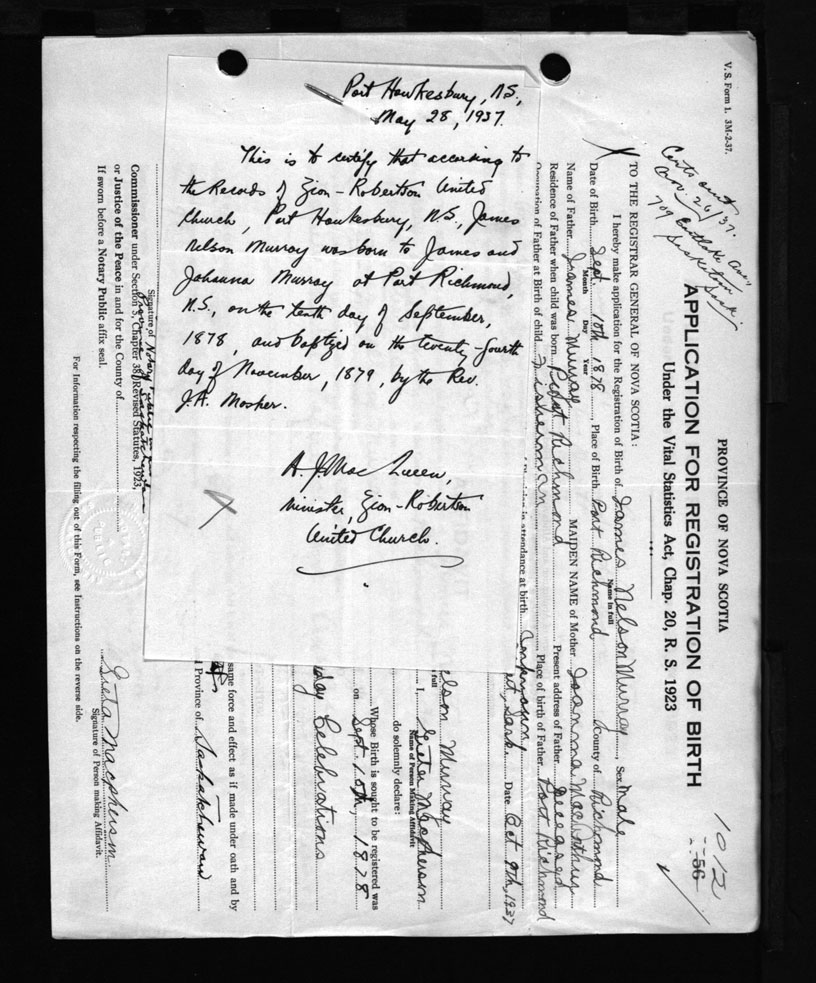 Port Hawkesbury, N.S.,
May 28, 1937.
This is to certify that according to
the Records of Zion-Robertson United
Church, Port Hawkesbury, N.S., James
Nelson Murray was born to James and
Johanna Murray at Port Richmond,
N.S., on the tenth day of September,
1878, and baptized on the twenty-fourth
day of November, 1879, by the Rev.
J.A. Mosher.
A. J. MacQueen,
Minister, Zion-Robertson
United Church.
V. S. Form 1. 3M-2-37.
Certs out
26/37.
709
Saskatoon
Sask.
1012
56
PROVINCE OF NOVA SCOTIA
APPLICATION FOR REGISTRATION OF BIRTH
Under the Vital Statistics Act, Chap. 20, R. S. 1923
TO THE REGISTRAR GENERAL OF NOVA SCOTIA:
I hereby make application for the Registration of Birth of James Nelson Murray, Sex Male
Name in full
Date of Birth Sept. 10th 1878, Place of Birth Port Richmond County of Richmond
Month Day Year
Name of Father James Murray MAIDEN NAME of Mother Joanna
Residence of Father when child was born Port Richmond Present address of Father Deceased
Occupation of Father at Birth of child Fisherman Place of birth of Father Port Richmond
Physician in attendance at birth
Sask. Date Oct 9th, 1937
elson Murray
full
I, Greta Macpherson
Name of Person Making Affidavit
do solemnly declare:
Whose Birth is sought to be registered was
on Sept. 10th, 1878
day Celebrations
same force and effect as if made under oath and by
Province of Saskatchewan
Signature of Notary Public
Province of Saskatchewan
Commissioner under Section 5, Chapter 38, Revised Statutes, 1923,
or Justice of the Peace in and for the County of
If sworn before a Notary Public affix seal.
Greta Macpherson
Signature of Person making Affidavit.
For Information respecting the filling out of this Form, see Instructions on the reverse side.